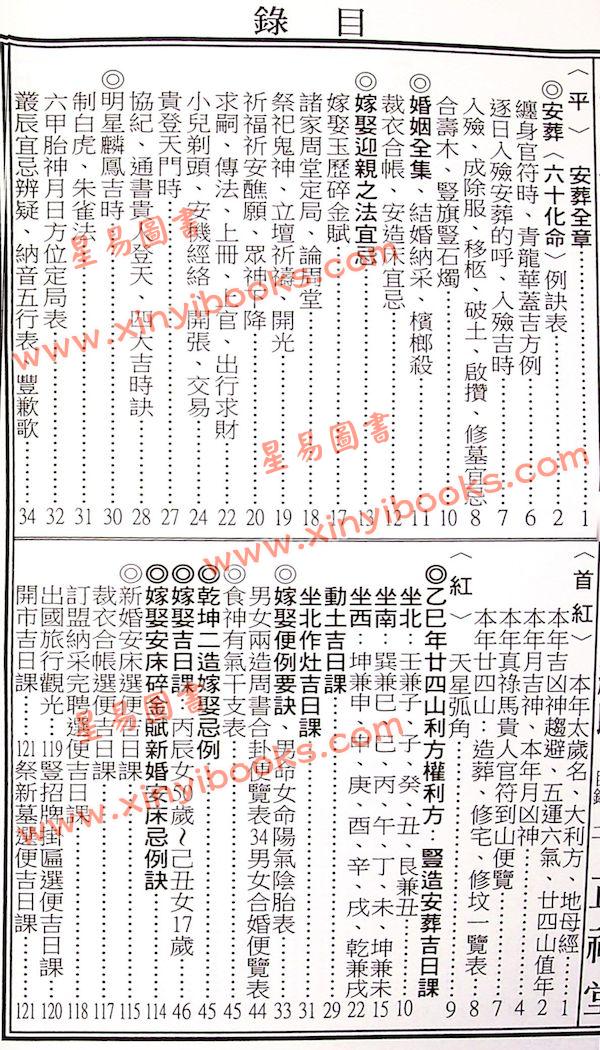 目錄
〈平〉 安葬全章 1
◎安葬〈六十化命〉例訣表 2
纏身官符時、青龍華蓋吉方例 6
逐日入殮安葬的呼、入殮吉時 7
入殮、成除服、移柩、破土、啟攢、修墓宜忌 8
合壽木、豎旗豎石燭 10
◎婚姻全集、結婚納采、檳榔殺 11
裁衣合帳、安造床宜忌 12
◎嫁娶迎親之法宜忌 13
嫁娶玉歷碎金賦 17
諸家周堂定局、論周堂 18
祭祀鬼神、立壇祈禱、開光 19
祈福祈安醮願、眾神下降 20
求嗣、傳法、上冊、上官、出行求財 22
小兒剃頭、安機經絡、開張、交易 24
貴登天門時 27
協紀、通書貴人登天、四大吉時訣 28
◎明星麟鳳吉時 30
制白虎、朱雀法 31
六甲胎神月日方位定局表 32
叢辰宜忌辨疑、納音五行表、豐歉歌 34
〈首紅〉 本年太歲名、大利方、地母經 1
本年吉凶神趨避、五運六氣、廿四山值年 2
本年月吉神、本年月凶神 4
本年真祿馬貴人官符到山便覽 7
本年廿四山：造葬、修宅、修坟一覽表 8
〈紅〉 天星弧角 9
◎乙巳年廿四山利方權利方：豎造安葬吉日課
坐北：壬兼子、子、癸、丑、艮兼丑 10
坐南：巽兼巳、巳、丙、午、丁、未、坤兼未 15
坐西：坤兼申、申、庚、酉、辛、戌、乾兼戌 22
動土吉日課 29
坐北作灶吉日課 31
◎嫁娶便例要訣、男命女命陽氣陰胎表 33
男女兩造周書合卦便覽表34男女合婚便覽表 44
◎食神有氣干支表 45
◎乾坤二造嫁娶忌例 45
◎嫁娶吉日課、丙辰女50歲～己丑女17歲 46
◎嫁娶安床碎金賦新婚安床忌例訣 114
◎新婚安床選便吉日課 115
裁衣合帳選便吉日課 117
訂盟納采完聘選便吉日課 118
出國旅行觀光 119豎招牌掛匾選便吉日課 120
開市吉日課 121祭新墓選便吉日課 121
星易圖書
www.xinyibooks.com
星易圖書
www.xinyibooks.com
星易圖書
www.xinyibooks.com
星易圖書
www.xinyibooks.com